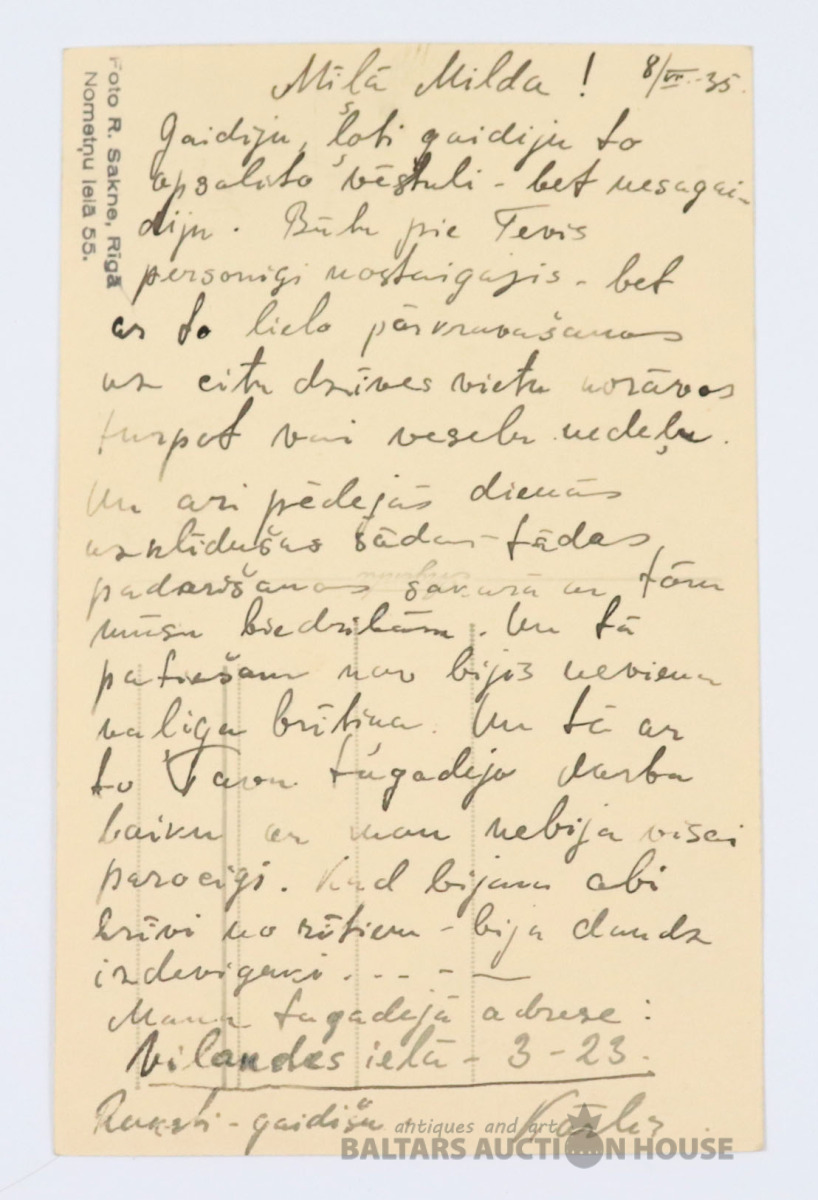 Foto R. Sakne, Rīgā
Nometņu ielā 55.
Mīlā Milda! 8/VI-35.
Gaidiju, ļoti gaidiju to
apsolito vēstuli - bet nesagai-
diju. Būtu pie Tevis
personigi nostaigajis - bet
ar to lielo pārkravašanos
uz citu dzīves vietu norāvos
turpat vai veselu nedeļu.
Un ari pēdejās dienās
uzklīdušas šādas-tādas
padarīšanas sakarā ar tām
mūsu biedrībām. Un tā
patiešam nav bijis neviena
valiga brītiņa. Un tā ar
to Tavu tagadejo darba
laiku ar man nebija visai
parocigi. Kad bijam abi
brīvi no rītiem - bija daudz
izdevigaki . - - - —
Mana tagadejā adrese:
Vilandes ielā - 3 - 23.
Raksti - gaidišu Kārlis.
antiques and art
BALTARS AUCTION HOUSE